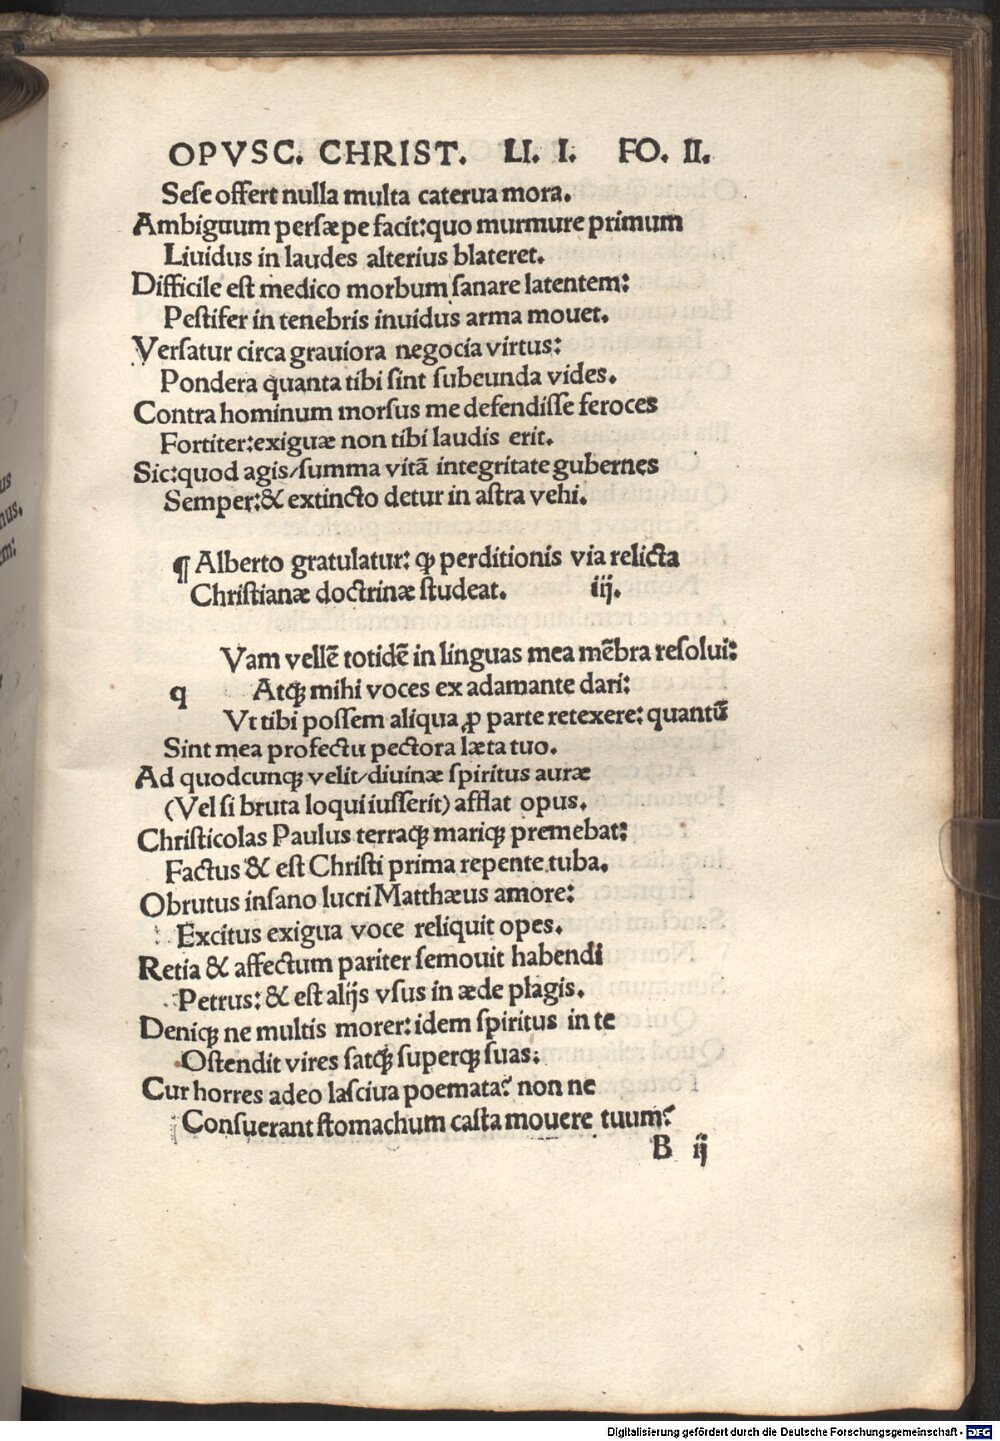 OPVSC. CHRIST. LI. I. FO. II.
Seſe offert nulla multa caterua mora.
Ambiguum perſæpe facit: quo murmure primum
Liuidus in laudes alterius blateret.
Difficile eſt medico morbum ſanare latentem:
Peſtifer in tenebris inuidus arma mouet.
Verſatur circa grauiora negocia virtus:
Pondera quanta tibi ſint ſubeunda vides.
Contra hominum morſus me defendiſſe feroces
Fortiter: exiguæ non tibi laudis erit.
Sic: quod agis/ſumma vitā integritate gubernes
Semper: & extincto detur in aſtra vehi.
¶ Alberto gratulatur: ꝙ perditionis via relicta
Chriſtianæ doctrinæ ſtudeat. iij.
Vam vellē totidē in linguas mea mēbra reſolui:
q Atq; mihi voces ex adamante dari:
Vt tibi poſſem aliqua ꝓ parte retexere: quantū
Sint mea profectu pectora læta tuo.
Ad quodcunq; velit/diuinæ ſpiritus auræ
(Vel ſi bruta loqui iuſſerit) afflat opus.
Chriſticolas Paulus terraq; mariq; premebat:
Factus & eſt Chriſti prima repente tuba.
Obrutus inſano lucri Matthæus amore:
Excitus exigua voce reliquit opes.
Retia & affectum pariter ſemouit habendi
Petrus: & eſt alijs vſus in æde plagis.
Deniq; ne multis morer: idem ſpiritus in te
Oſtendit vires ſatq; ſuperq; ſuas.
Cur horres adeo laſciua poemata? non ne
Conſuerant ſtomachum caſta mouere tuum?
B ij
us
nus.
m:
Digitalisierung gefördert durch die Deutsche Forschungsgemeinschaft - DFG